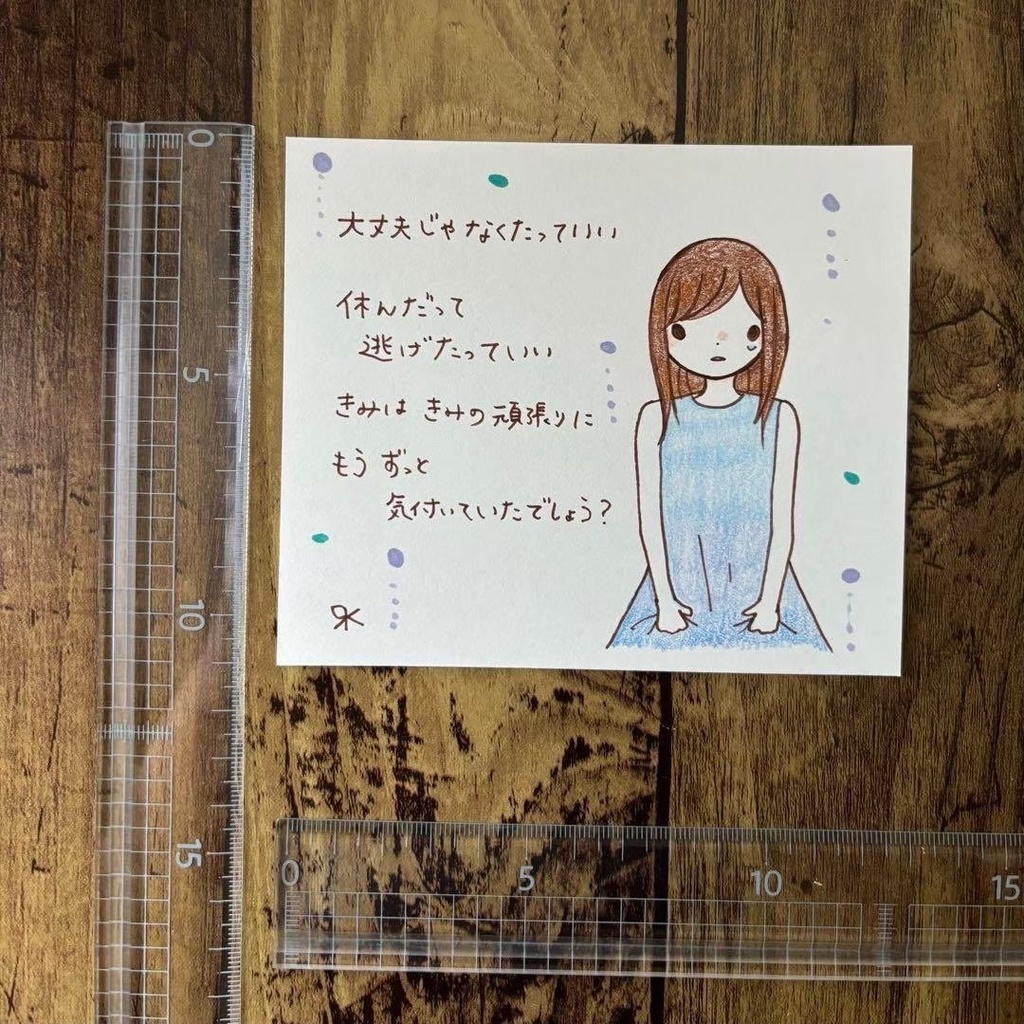 大丈夫じゃなくたっていい
休んだって
逃げたっていい
きみは きみの頑張りに
もう ずっと
気付いていたでしょう?
0
5
10
15
0
5
10
15